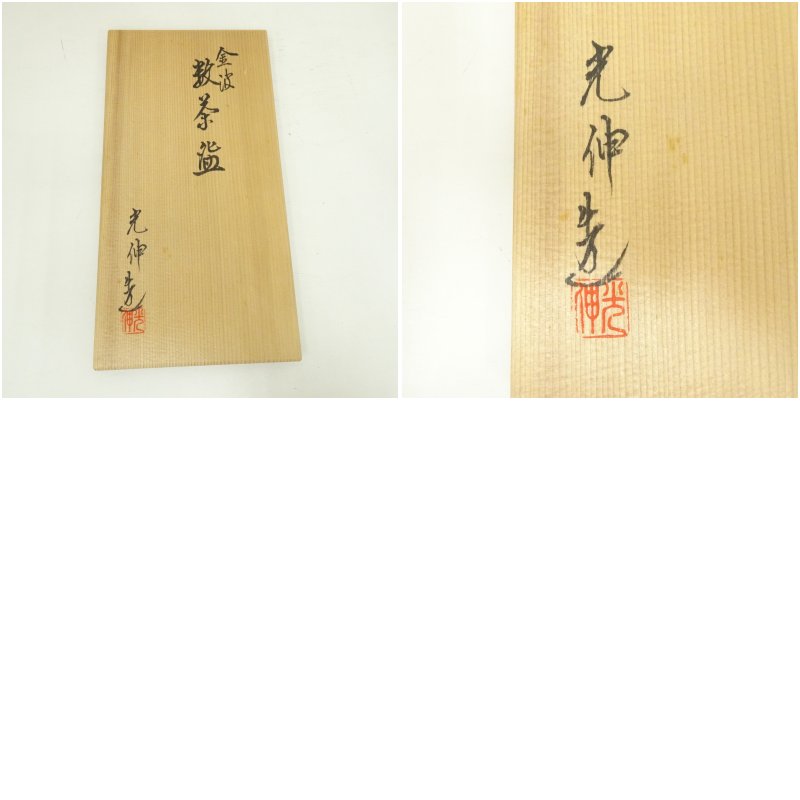 金波
数茶盌
光伸造
光伸
光伸造
光伸